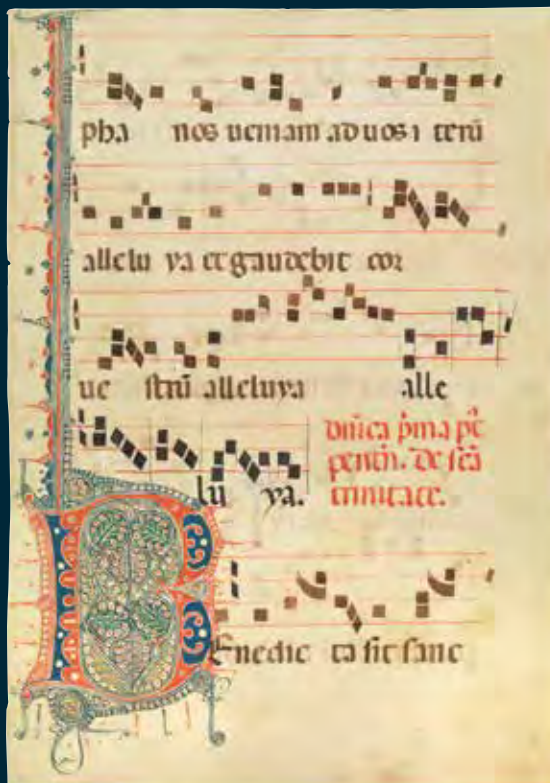 pha nos ueniam ad uos i terū
allelu ya et gaudebit cor
ue strū alleluya alle
lu ya.
dnīca p̄ma pꝰ
pentħ. de scā
trinitate.
Benedic ta sit sanc